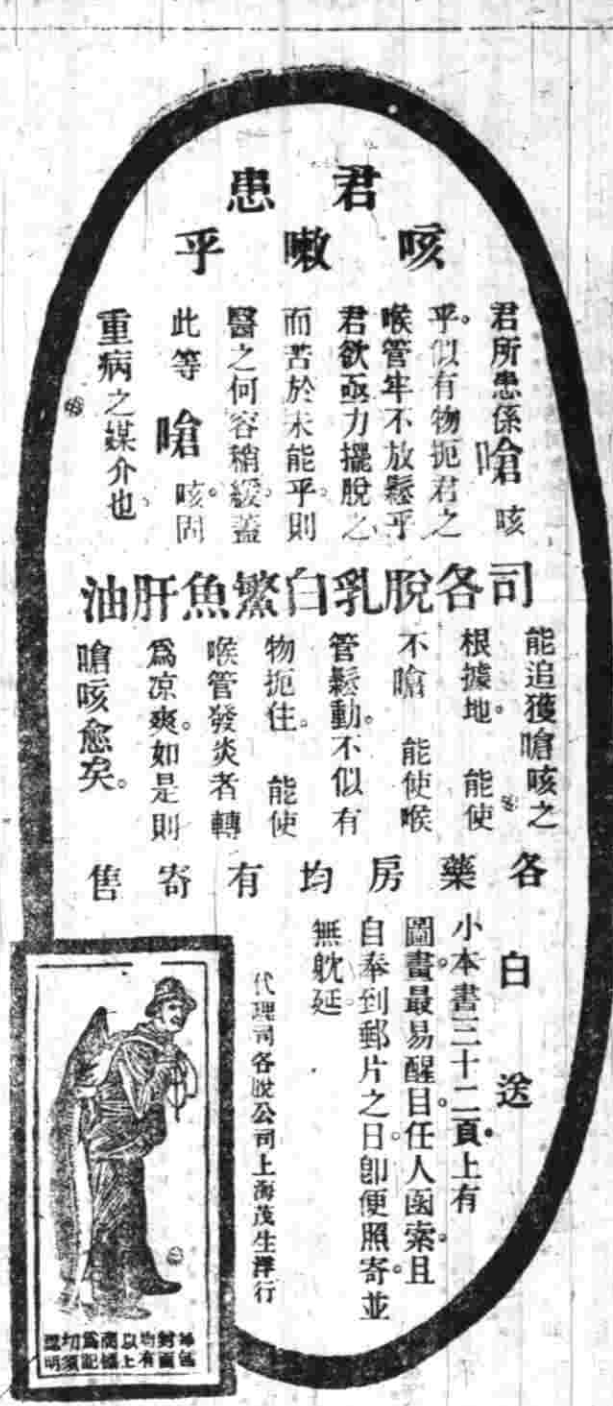 君患
咳嗽乎
君所患係嗆咳
乎。似有物扼君之
喉管牢不放鬆乎
君欲亟力擺脫之
而苦於未能乎。則
醫之何容稍緩。蓋
此等嗆咳。固
重病之媒介也。
司各脫乳白鰵魚肝油
能追獲嗆咳之
根據地。能使
不嗆 能使喉
管鬆動。不似有
物扼住。能使
喉管發炎者轉
為凉爽。如是則
嗆咳愈矣。
各藥房均有寄售
白送
小本書三十二頁。上有
圖畫。最易醒目。任人函索。且
自奉到郵片之日。卽便照寄。並
無躭延。
代理司各脫公司上海茂生洋行
封面
物有
以上
商標
為記
切須
認明